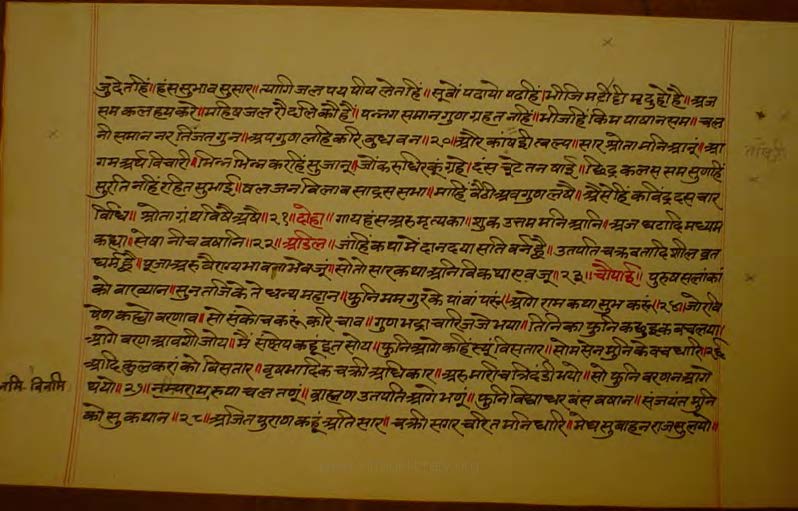 जुदेतहिं॥हंससुभावसुसार॥त्यागिजलपयपीयलेतहिं॥सूवोंपढायोपढहिं।भीजिमटीहीमृदुहोहै॥अज
समकलहयकरे॥महिषजलरौदलिकौहौं॥पन्नगसमानगुणग्रहतनहिं॥भीजोंहिंकिमपाषानसम॥चल
नीसमाननरनिंजतगुन॥अपगुणलहिकरिबुधवन॥२०॥औरकांषइीत्वल्प॥सारश्रोतामनिआनूं॥आ
गमअर्थविचारी॥भिन्नभिन्नकरहिंसुजानू॥जोंकरुधिरकूंग्रहै।दंसचूटेतनषाई॥छिद्रकलससमसुणहिं
सुरतिनहिंरहितसुभाई॥षलजनबिलावसादससभा॥माहिंबैठीअवगुणलषै॥अैसेंहिंकविंददसचार
विधि॥श्रोताग्रंथविषैअषै॥२१॥दोहा॥गायहंसअरुमृत्यका॥शुकउत्तममनिआनि॥अजघटादिमध्यम
कह्या॥सेषानीचवषानि॥२२॥अडिल॥जांहिंकथामेंदानदयासतिवर्नहै॥उतपतिचक्रवतादिशीलव्रत
धर्महै॥पूजाअरुवैराग्यभावनामेवजूं॥सोतोसारकथाअनिविकथाएवजू॥२३॥चौपाई॥पुरुषसलांकां
कोवाख्यान॥सुनतजिकेतेधन्यमहान॥फुनिममगुरकेपांवांपरूं॥आगैरामकथासुभकरूं॥२४॥जोरवि
षेणकह्योवरणाव॥सोसंकोचकरूंकरिचाव॥गुणभद्राचारिजजेभया॥तिनिकाफुनिकछुइकवचलया॥
आगेंवरणआवशीजोय॥मेंसंछेयकहूंइतसोय॥फुनिआगेंकहिस्यूंविसतार॥सोमसेनमुनिकेवचधारि॥२६
आदिकुलकरांकोविसतार॥वृषभादिकचक्रीअधिकार॥अरुमारीचत्रिदंडीभयो॥सोफुनिवरणनआगें
थयो॥२७॥नम्यरायरुपाचलतणूं॥ब्राह्मणउतपतिआगेंभणूं॥फुनिविद्याधरबंसवषान॥संजयंतमुनि
कोसुकथान॥२८॥अजितपुराणकहूंअतिसार॥चक्रीसगरचरितमनिधारि॥मेघसुबाहनराजसुलयो॥
नमि.विनमि